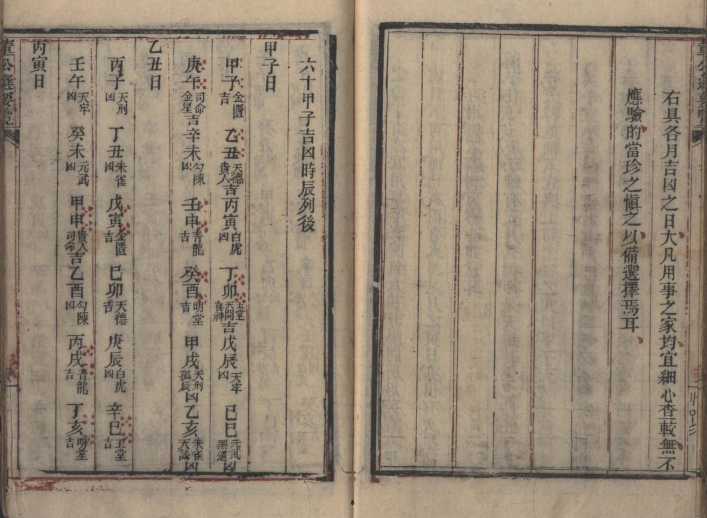 右具各月吉凶之日大凡用事之家均宜細心查較無不
應驗的當珍之慎之以備選擇焉耳
六十甲子吉凶時辰列後
甲子日
甲子金匱吉乙丑天德貴人吉丙寅白虎凶丁卯玉堂天開吉戊辰天牢凶己巳元武黑道凶
庚午司命金星吉辛未勾陳凶壬申青龍吉癸酉明堂吉甲戌天刑孤辰凶乙亥朱雀天訟凶
乙丑日
丙子天刑凶丁丑朱雀凶戊寅金匱吉己卯天德吉庚辰白虎凶辛巳玉堂吉
壬午天牢凶癸未元武凶甲申貴人司命吉乙酉勾陳凶丙戌青龍吉丁亥明堂吉
丙寅日
董公選要覽